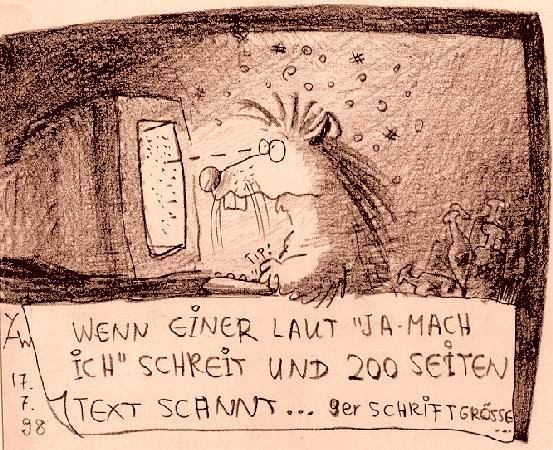 TIP!
WENN EINER LAUT "JA-MACH
ICH" SCHREIT UND 200 SEITEN
TEXT SCANNT... 9er SCHRIFTGRÖSSE
...
17.
7.
98